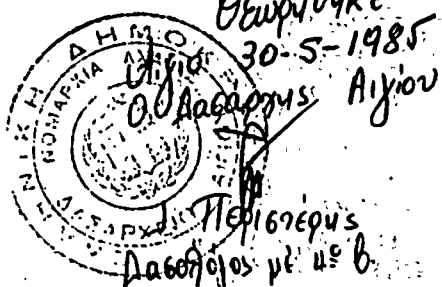 Θεωρήθηκε
Αίγιο 30-5-1985
Ο Δασάρχης Αιγίου
Περιστέρης
Δασολόγος με 4º β.
ΕΛΛΗΝΙΚΗ ΔΗΜΟ
ΝΟΜΑΡΧΙΑ
ΔΑΣΑΡΧΕΙΟ